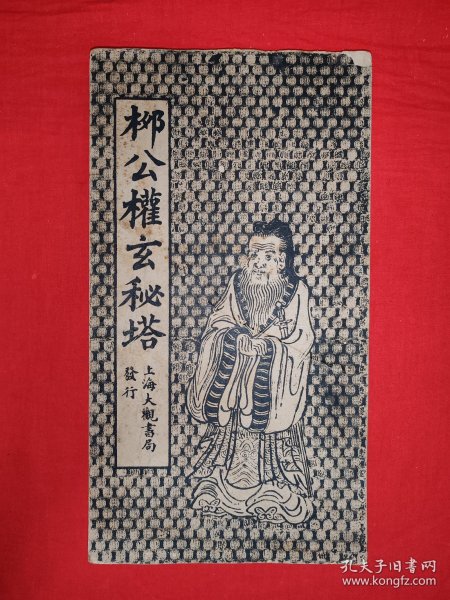 柳公權玄秘塔
上海大觀書局
發行
孔夫子旧书网
www.kongfz.com